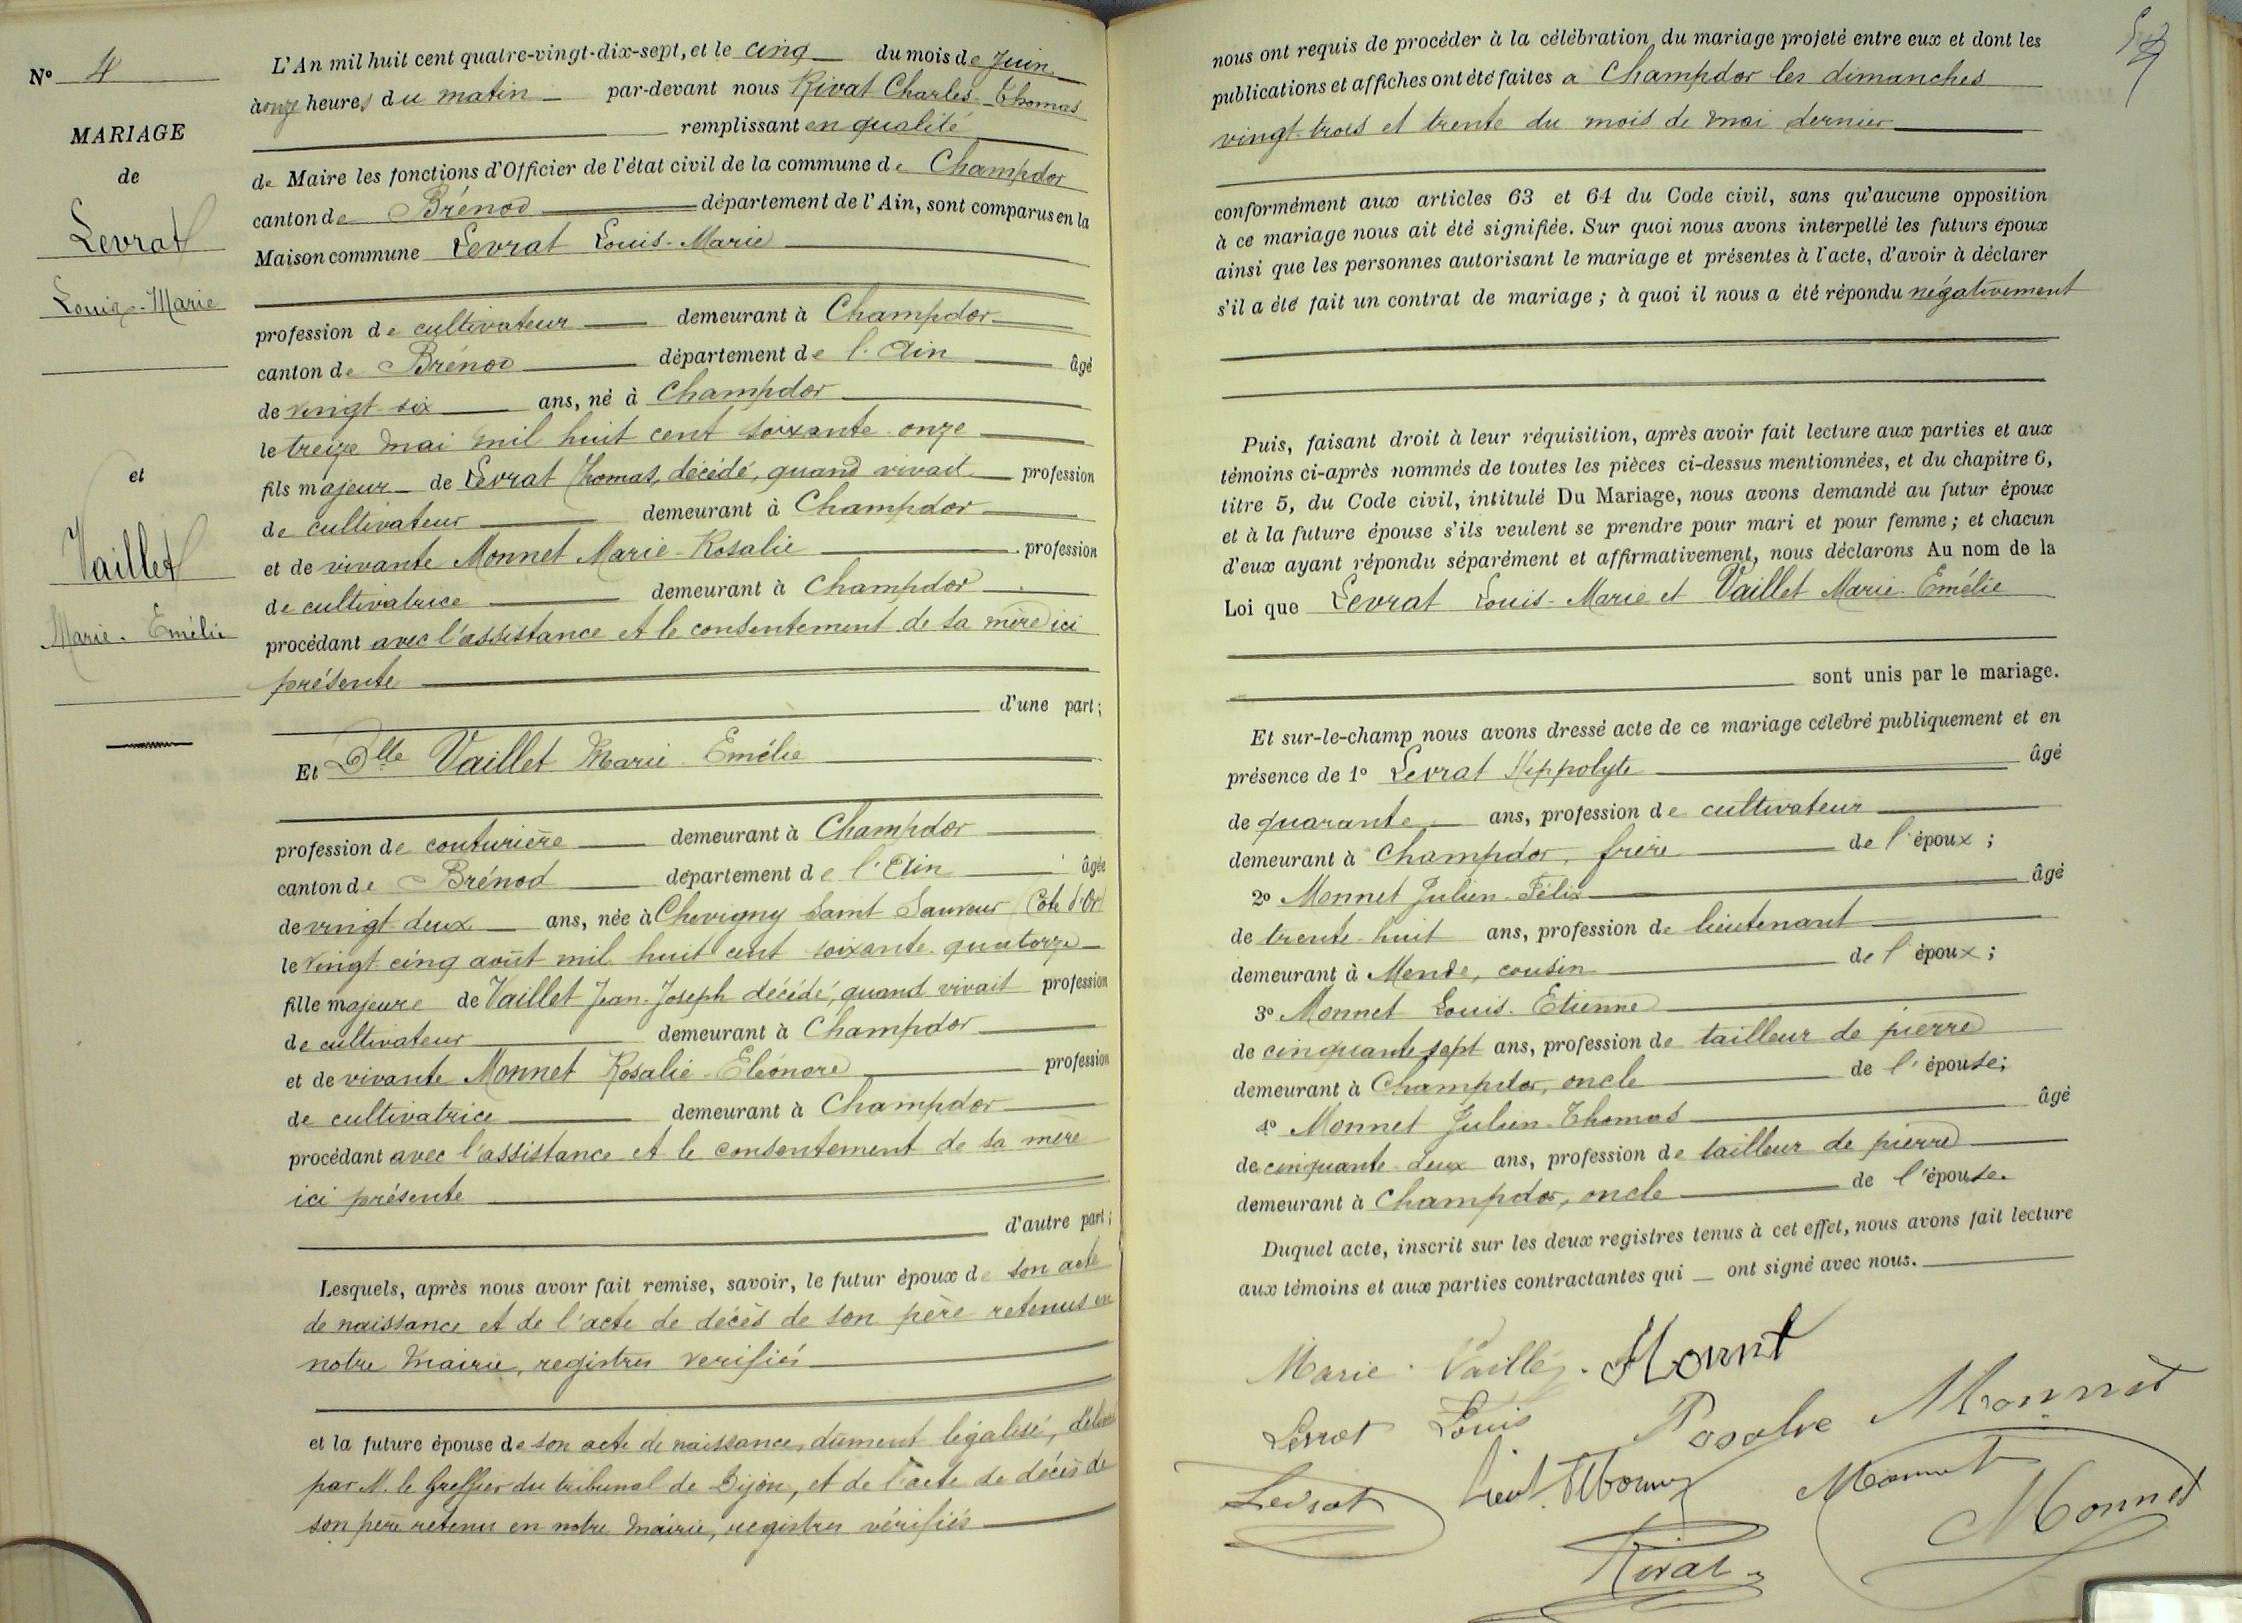 N° 4
MARIAGE
de
Levrat
Louis-Marie
et
Vaillet
Marie-Emélie
L'An mil huit cent quatre-vingt-dix-sept, et le cinq du mois de Juin
à onze heures du matin par-devant nous Rivat Charles-Thomas
remplissant en qualité
de Maire les fonctions d'Officier de l'état civil de la commune de Champdor
canton de Brénod département de l'Ain, sont comparus en la
Maison commune Levrat Louis-Marie
profession de cultivateur demeurant à Champdor
canton de Brénod département de l'Ain âgé
de vingt-six ans, né à Champdor
le treize mai mil huit cent soixante-onze
fils majeur de Levrat Thomas, décédé, quand vivait profession
de cultivateur demeurant à Champdor
et de vivante Monnet Marie-Rosalie profession
de cultivatrice demeurant à Champdor
procédant avec l'assistance et le consentement de sa mère ici
présente
d'une part;
Et Dlle Vaillet Marie-Emélie
profession de couturière demeurant à Champdor
canton de Brénod département de l'Ain âgée
de vingt-deux ans, née à Chevigny Saint Sauveur (Côte d'Or)
le vingt cinq août mil huit cent soixante-quatorze
fille majeure de Vaillet Jean-Joseph décédé, quand vivait profession
de cultivateur demeurant à Champdor
et de vivante Monnet Rosalie-Eléonore profession
de cultivatrice demeurant à Champdor
procédant avec l'assistance et le consentement de sa mère
ici présente
d'autre part;
Lesquels, après nous avoir fait remise, savoir, le futur époux de son acte
de naissance et de l'acte de décès de son père retenus en
notre Mairie, registres vérifiés
et la future épouse de son acte de naissance, dûment légalisé, délivré
par M. le Greffier du tribunal de Dijon, et de l'acte de décès de
son père retenu en notre Mairie, registres vérifiés
nous ont requis de procéder à la célébration du mariage projeté entre eux et dont les
publications et affiches ont été faites à Champdor les dimanches
vingt-trois et trente du mois de mai dernier
conformément aux articles 63 et 64 du Code civil, sans qu'aucune opposition
à ce mariage nous ait été signifiée. Sur quoi nous avons interpellé les futurs époux
ainsi que les personnes autorisant le mariage et présentes à l'acte, d'avoir à déclarer
s'il a été fait un contrat de mariage; à quoi il nous a été répondu négativement
Puis, faisant droit à leur réquisition, après avoir fait lecture aux parties et aux
témoins ci-après nommés de toutes les pièces ci-dessus mentionnées, et du chapitre 6,
titre 5, du Code civil, intitulé Du Mariage, nous avons demandé au futur époux
et à la future épouse s'ils veulent se prendre pour mari et pour femme; et chacun
d'eux ayant répondu séparément et affirmativement, nous déclarons Au nom de la
Loi que Levrat Louis-Marie et Vaillet Marie-Emélie
sont unis par le mariage.
Et sur-le-champ nous avons dressé acte de ce mariage célébré publiquement et en
présence de 1° Levrat Hippolyte âgé
de quarante ans, profession de cultivateur
demeurant à Champdor, frère de l'époux;
2° Monnet Julien-Félix âgé
de trente-huit ans, profession de lieutenant
demeurant à Mende, cousin de l'époux;
3° Monnet Louis-Etienne
de cinquante sept ans, profession de tailleur de pierre
demeurant à Champdor, oncle de l'épouse;
4° Monnet Julien-Thomas âgé
de cinquante-deux ans, profession de tailleur de pierre
demeurant à Champdor, oncle de l'épouse.
Duquel acte, inscrit sur les deux registres tenus à cet effet, nous avons fait lecture
aux témoins et aux parties contractantes qui ont signé avec nous.
Marie Vaillet Monnet
Levrat Louis Rosalie Monnet
Levrat Lieut. Monnet Monnet Monnet
Rivat